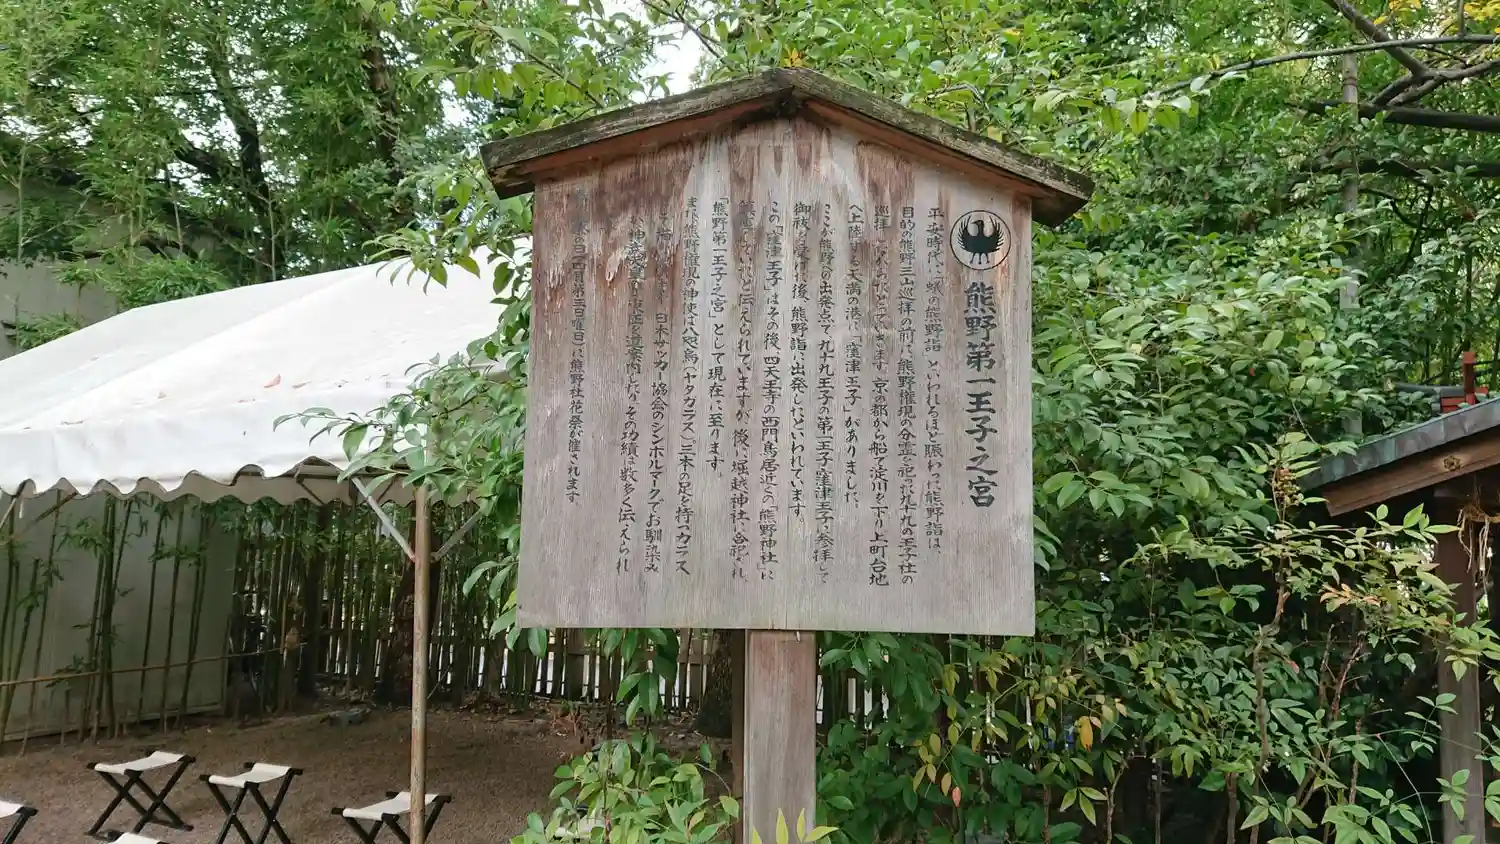 熊野第一王子之宮
平安時代に「蟻の熊野詣」といわれるほど賑わった熊野詣は、
目的の熊野三山巡拝の前に、熊野権現の分霊を祀った九十九の王子社の
巡拝からはじまるといっています。京の都から船で淀川を下り上町台地
へ上陸する天満の港に「窪津王子」がありました。
ここが熊野への出発点で九十九王子の第一王子窪津王子に参拝して
御祓を受けた後、熊野詣に出発したといわれています。
この「窪津王子」はその後、四天王寺の西門鳥居近くの「熊野神社」に
鎮座していたと伝えられていますが、後に堀越神社に合祀され
「熊野第一王子之宮」として現在に至ります。
また、熊野権現の神使は八咫烏(ヤタカラス)三本の足を持つカラス
日本サッカー協会のシンボルマークでお馴染み
神武天皇の東征を道案内したりその功績は数多く伝えられ
の日(四月第三日曜日)に熊野社花祭が催されます。